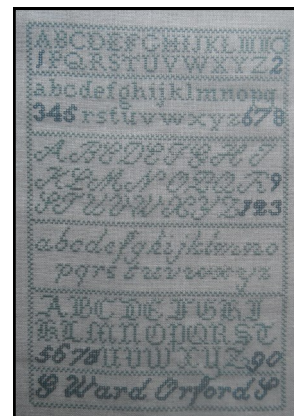 ABCDEFGHIJKLMNO
1PQRSTUVWXYZ2
abcdefghijklmnopq
345rstuvwxyz678
ABCDEFGHIJ
KLMNOPQR9
STUVWXYZ123
abcdefghijklmno
pqrstuvwxyz
ABCDEFGHIJ
KLMNOPQRST
5678UVWXYZ90
G Ward Orford S